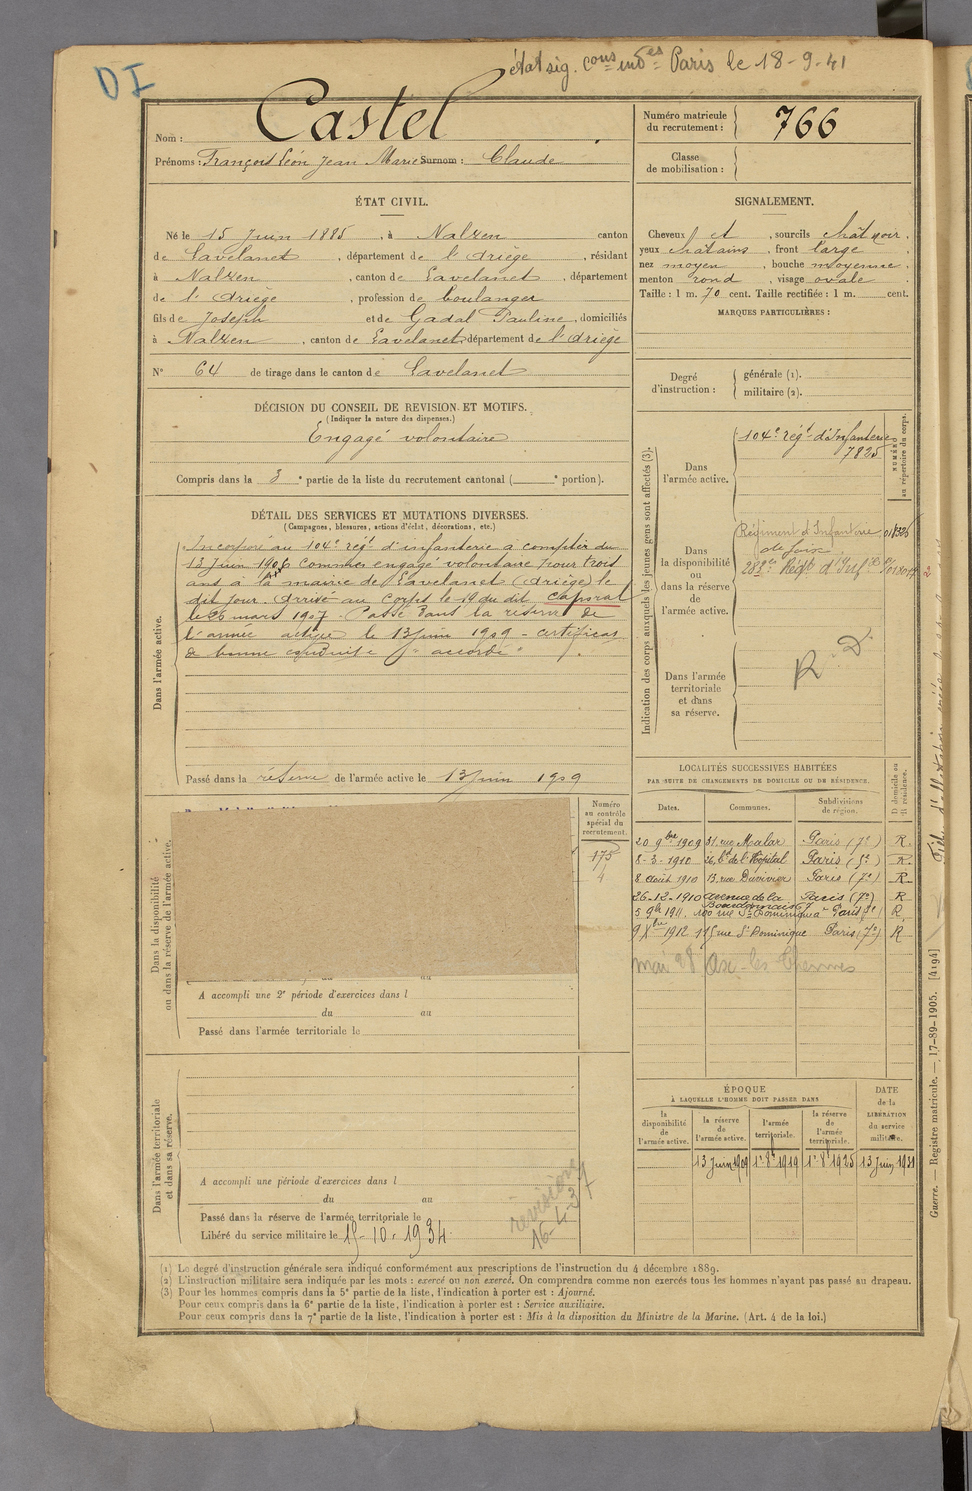 DI
état sig. cons indes Paris le 18-9-41
Nom : Castel
Prénoms : François Léon Jean Marie Surnom : Claude
Numéro matricule du recrutement : 766
Classe de mobilisation :
ÉTAT CIVIL.
Né le 15 Juin 1885, à Nalzen canton
de Lavelanet, département de l'Ariège, résidant
à Nalzen, canton de Lavelanet, département
de l'Ariège, profession de boulanger
fils de Joseph et de Gadal Pauline, domiciliés
à Nalzen, canton de Lavelanet département de l'Ariège
N° 64 de tirage dans le canton de Lavelanet
SIGNALEMENT.
Cheveux et, sourcils chât noir,
yeux châtains, front large
nez moyen, bouche moyenne,
menton rond, visage ovale.
Taille : 1 m. 70 cent. Taille rectifiée : 1 m. cent.
MARQUES PARTICULIÈRES :
Degré d'instruction : générale (1).
militaire (2).
DÉCISION DU CONSEIL DE REVISION ET MOTIFS.
(Indiquer la nature des dispenses.)
Engagé volontaire
Compris dans la 3e partie de la liste du recrutement cantonal (e portion).
DÉTAIL DES SERVICES ET MUTATIONS DIVERSES.
(Campagnes, blessures, actions d'éclat, décorations, etc.)
Dans l'armée active.
Incorporé au 104e régt d'infanterie à compter du
13 Juin 1906 comme engagé volontaire pour trois
ans à la mairie de Lavelanet (Ariège) le
dit jour. Arrivé au Corps le 19 du dit caporal
le 25 mars 1907. Passé dans la réserve de
l'armée active le 13 Juin 1909 - certificat
de bonne conduite "accordé".
Passé dans la réserve de l'armée active le 13 Juin 1909
Indication des corps auxquels les jeunes gens sont affectés (3).
NUMÉRO au répertoire du corps.
Dans l'armée active.
104e régt d'Infanterie
7825
Dans la disponibilité ou dans la réserve de l'armée active.
Régiment d'Infanterie
de foix
283e Régt d'Inf
Dans l'armée territoriale et dans sa réserve.
R. D.
LOCALITÉS SUCCESSIVES HABITÉES
PAR SUITE DE CHANGEMENTS DE DOMICILE OU DE RÉSIDENCE.
Dates. Communes. Subdivisions de région. D domicile ou R résidence.
20 9bre 1909 31, rue Malar Paris (7e) R.
8-3-1910 26, bd de l'Hôpital Paris (5e) R
8 Août 1910 13, rue Duvivier Paris (7e) R
26-12-1910 avenue de la Bourdonnais 67 Paris (7e) R
5 9bre 1911. 100 rue St Dominique Paris 7e) R
9 Xbre 1912 115 rue St Dominique Paris (7e) R
mai 28 Ax-les Thermes
Dans la disponibilité ou dans la réserve de l'armée active.
Numéro au contrôle spécial du recrutement.
175
4
A accompli une 2e période d'exercices dans l
du au
Passé dans l'armée territoriale le
Dans l'armée territoriale et dans sa réserve.
A accompli une période d'exercices dans l
du au
Passé dans la réserve de l'armée territoriale le
Libéré du service militaire le 15-10-1934
révision
16-4-37
ÉPOQUE
À LAQUELLE L'HOMME DOIT PASSER DANS
la disponibilité de l'armée active. la réserve de l'armée active. l'armée territoriale. la réserve de l'armée territoriale.
DATE de la LIBÉRATION du service militaire.
13 Juin 1909 1er 8bre 1919 1er 8bre 1925 13 Juin 1931
Guerre. — Registre matricule. — 17-89-1905. [4194]
(1) Le degré d'instruction générale sera indiqué conformément aux prescriptions de l'instruction du 4 décembre 1889.
(2) L'instruction militaire sera indiquée par les mots : exercé ou non exercé. On comprendra comme non exercés tous les hommes n'ayant pas passé au drapeau.
(3) Pour les hommes compris dans la 5e partie de la liste, l'indication à porter est : Ajourné.
Pour ceux compris dans la 6e partie de la liste, l'indication à porter est : Service auxiliaire.
Pour ceux compris dans la 7e partie de la liste, l'indication à porter est : Mis à la disposition du Ministre de la Marine. (Art. 4 de la loi.)